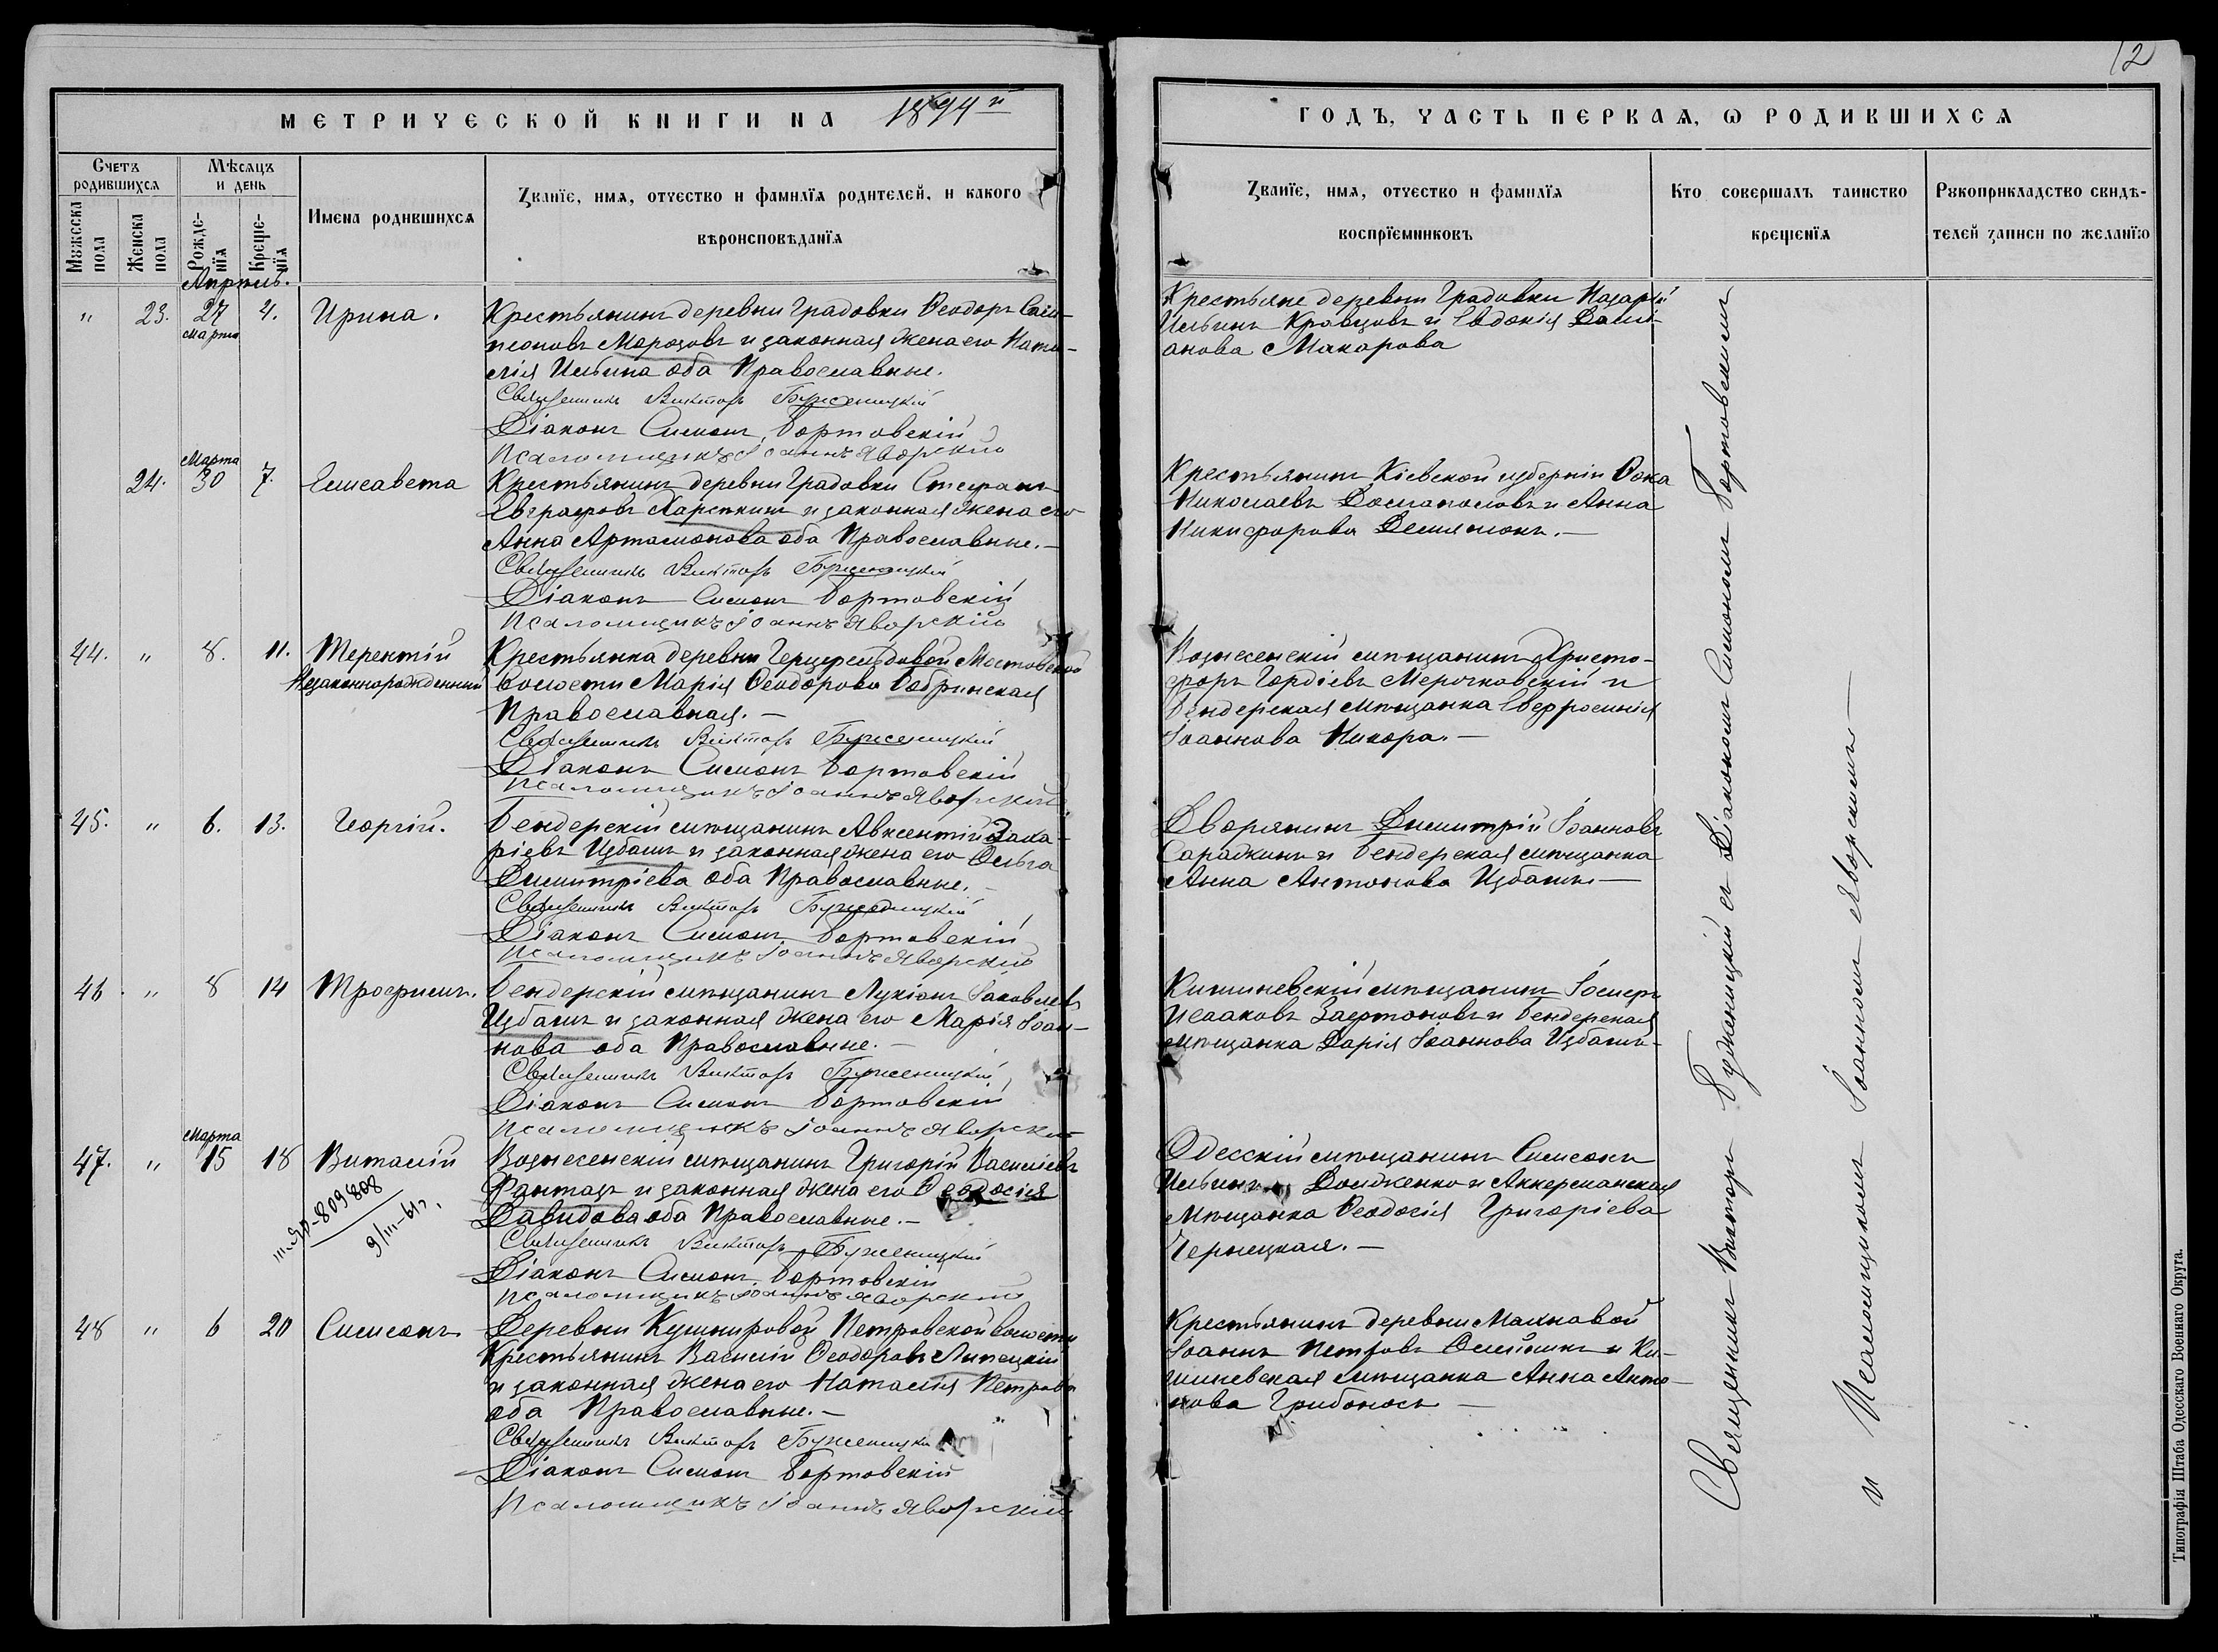 12
МЕТРИЧЕСКОЙ КНИГИ НА 1894й
ГОДЪ, ЧАСТЬ ПЕРВАѦ, Ѡ РОДИВШИХСѦ
Счетъ родившихсѧ
Мѣсѧцъ и день
Мꙋжеска пола
Женска пола
Рожде-нїѧ
Креще-нїѧ
Имена родившихсѧ
Званїе, имѧ, отчество и фамилїѧ родителей, и какого
вѣроисповѣданїѧ
Званїе, имѧ, отчество и фамилїѧ
воспрїемниковъ
Кто совершалъ таинство
крещенїѧ
Рꙋкоприкладство свидѣ-
телей записи по желанїю
Апрель.
" 23. 27 4. Ирина.
Марта
Крестьянинъ деревни Градовки Ѳеодоръ Сам-
псоновъ Морозовъ и законная жена его Ната-
лія Ильина оба Православные.
Священникъ Викторъ Буженицкій
Діаконъ Симонъ Бортовскій
Псаломщикъ Іоаннъ Яворскій
Крестьяне деревни Градовки Назарій
Ильинъ Кравцовъ и Евдокія Дамі-
анова Макарова
Марта
24. 30 7. Елисавета
Крестьянинъ деревни Градовки Стефанъ
Евграфовъ и законная жена его
Анна Артамонова оба Православные.—
Священникъ Викторъ Буженицкій
Діаконъ Симонъ Бортовскій
Псаломщикъ Іоаннъ Яворскій
Крестьянинъ Кіевской губерніи Ѳока
Николаевъ и Анна
Никифорова Демянюкъ.—
44. " 8. 11. Терентій
Незаконнорожденный
Крестьянка деревни Мостовской
волости Марія Ѳеодорова Бобринская
Православная.—
Священникъ Викторъ Буженицкій
Діаконъ Симонъ Бортовскій
Псаломщикъ Іоаннъ Яворскій
Вознесенскій мѣщанинъ Христо-
форъ Гордіевъ Мерочковскій и
Бендерская мѣщанка Евфросинія
Іоаннова Никора.—
45. " 6. 13. Георгій.
Бендерскій мѣщанинъ Авксентій Заха-
ріевъ Избашъ и законная жена его Ольга
Димитріева оба Православные.—
Священникъ Викторъ Буженицкій
Діаконъ Симонъ Бортовскій
Псаломщикъ Іоаннъ Яворскій
Дворянинъ Димитрій Іоанновъ
Сарадкинъ и Бендерская мѣщанка
Анна Антонова Избашъ—
46. " 8 14 Трофимъ.
Бендерскій мѣщанинъ Лукіанъ Іаковлевъ
Избашъ и законная жена его Марія Іоан-
нова оба Православные.—
Священникъ Викторъ Буженицкій
Діаконъ Симонъ Бортовскій
Псаломщикъ Іоаннъ Яворскій
Кишиневскій мѣщанинъ Іосифъ
Исааковъ и Бендерская
мѣщанка Дарія Іоаннова Избашъ-
Марта
47. " 15 18 Виталій
III-ЯР-809808
9/III-61г.
Вознесенскій мѣщанинъ Григорій Василіевъ
Фантазъ и законная жена его Ѳеодосія
Давидова оба Православные.—
Священникъ Викторъ Буженицкій
Діаконъ Симонъ Бортовскій
Псаломщикъ Іоаннъ Яворскій
Одесскій мѣщанинъ Симеонъ
Ильинъ Долдженко и Аккерманская
Мѣщанка Ѳеодосія Григоріева
Чернецкая.—
48 " 6 20 Симеонъ
Деревни Кушнировой Петровской волости
Крестьянинъ Василій Ѳеодоровъ Липецкій
и законная жена его Наталія Петрова
оба Православные.—
Священникъ Викторъ Буженицкій
Діаконъ Симонъ Бортовскій
Псаломщикъ Іоаннъ Яворскій
Крестьянинъ деревни Малновой
Іоаннъ Петровъ Олейникъ и Ки-
шиневская мѣщанка Анна Анто-
нова Грибоносъ—
Священникъ Викторъ Бужницкій съ Діакономъ Симономъ Бортовскимъ
и Псаломщикомъ Іоанномъ Яворскимъ—
Типографія Штаба Одесскаго Военнаго Округа.